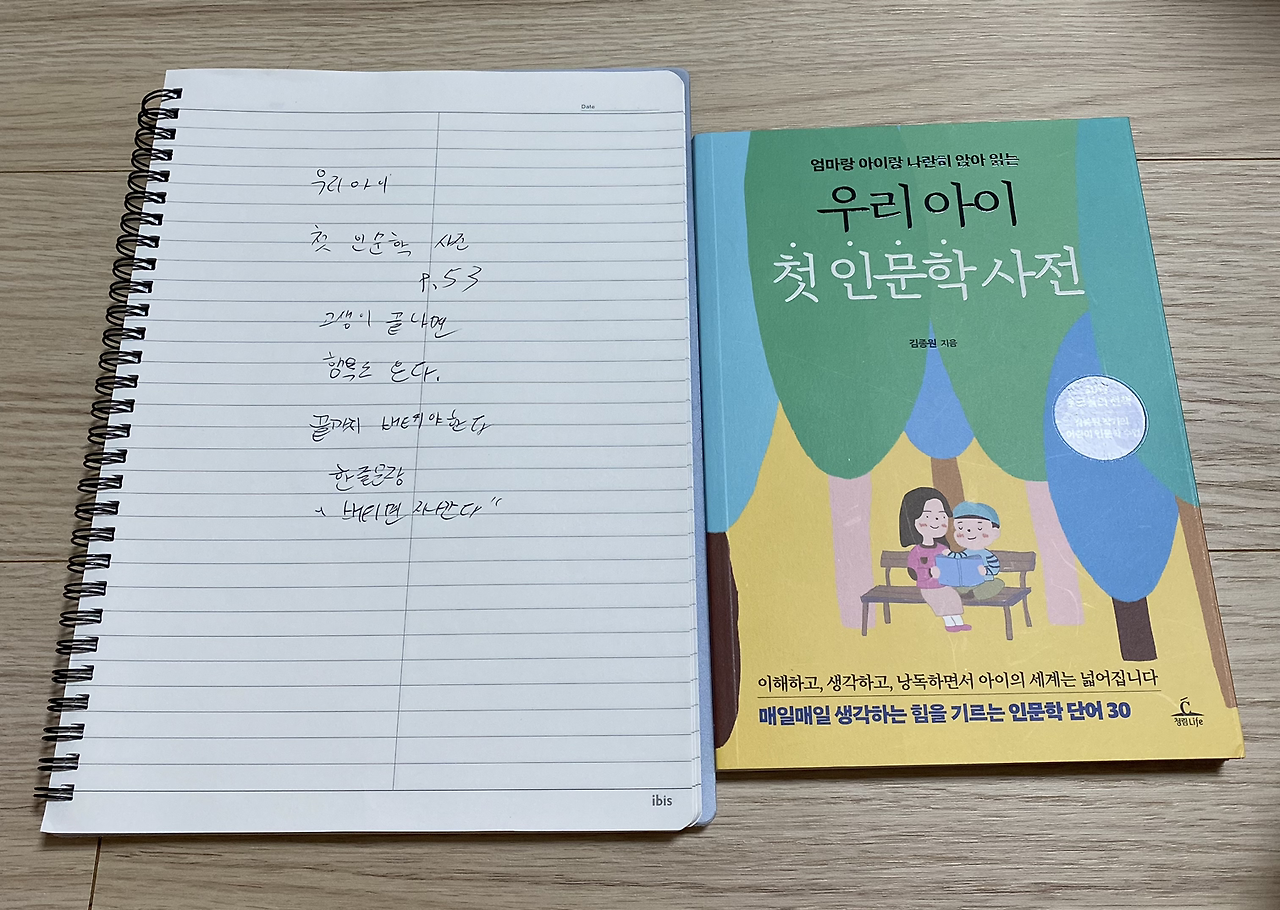 Date
우리 아이
첫 인문학 사전
P.53
고생이 끝나면
행복도 온다.
끝까지 버텨야한다
한글문장
"버티면 지나간다"
ibis
엄마랑 아이랑 나란히 앉아 읽는
우리 아이
첫 인문학 사전
김종원 지음
이해하고, 생각하고, 낭독하면서 아이의 세계는 넓어집니다
매일매일 생각하는 힘을 기르는 인문학 단어 30
청림Life